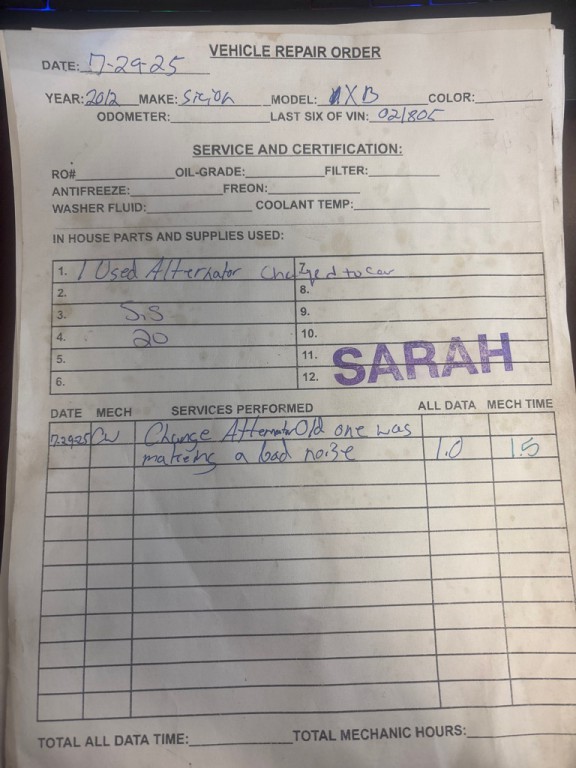 VEHICLE REPAIR ORDER
DATE: 7-29-25
YEAR: 2012 MAKE: Scion MODEL: XB COLOR:
ODOMETER: LAST SIX OF VIN: 021805
SERVICE AND CERTIFICATION:
RO# OIL-GRADE: FILTER:
ANTIFREEZE: FREON:
WASHER FLUID: COOLANT TEMP:
IN HOUSE PARTS AND SUPPLIES USED:
1. 1 Used Alternator Charged to car 7.
2. 8.
3. S.S 9.
4. 20 10.
5. 11.
6. 12.
SARAH
DATE MECH SERVICES PERFORMED ALL DATA MECH TIME
7-29-25 CW Change Alternator Old one was
making a bad noise 1.0 1.5
TOTAL ALL DATA TIME: TOTAL MECHANIC HOURS: